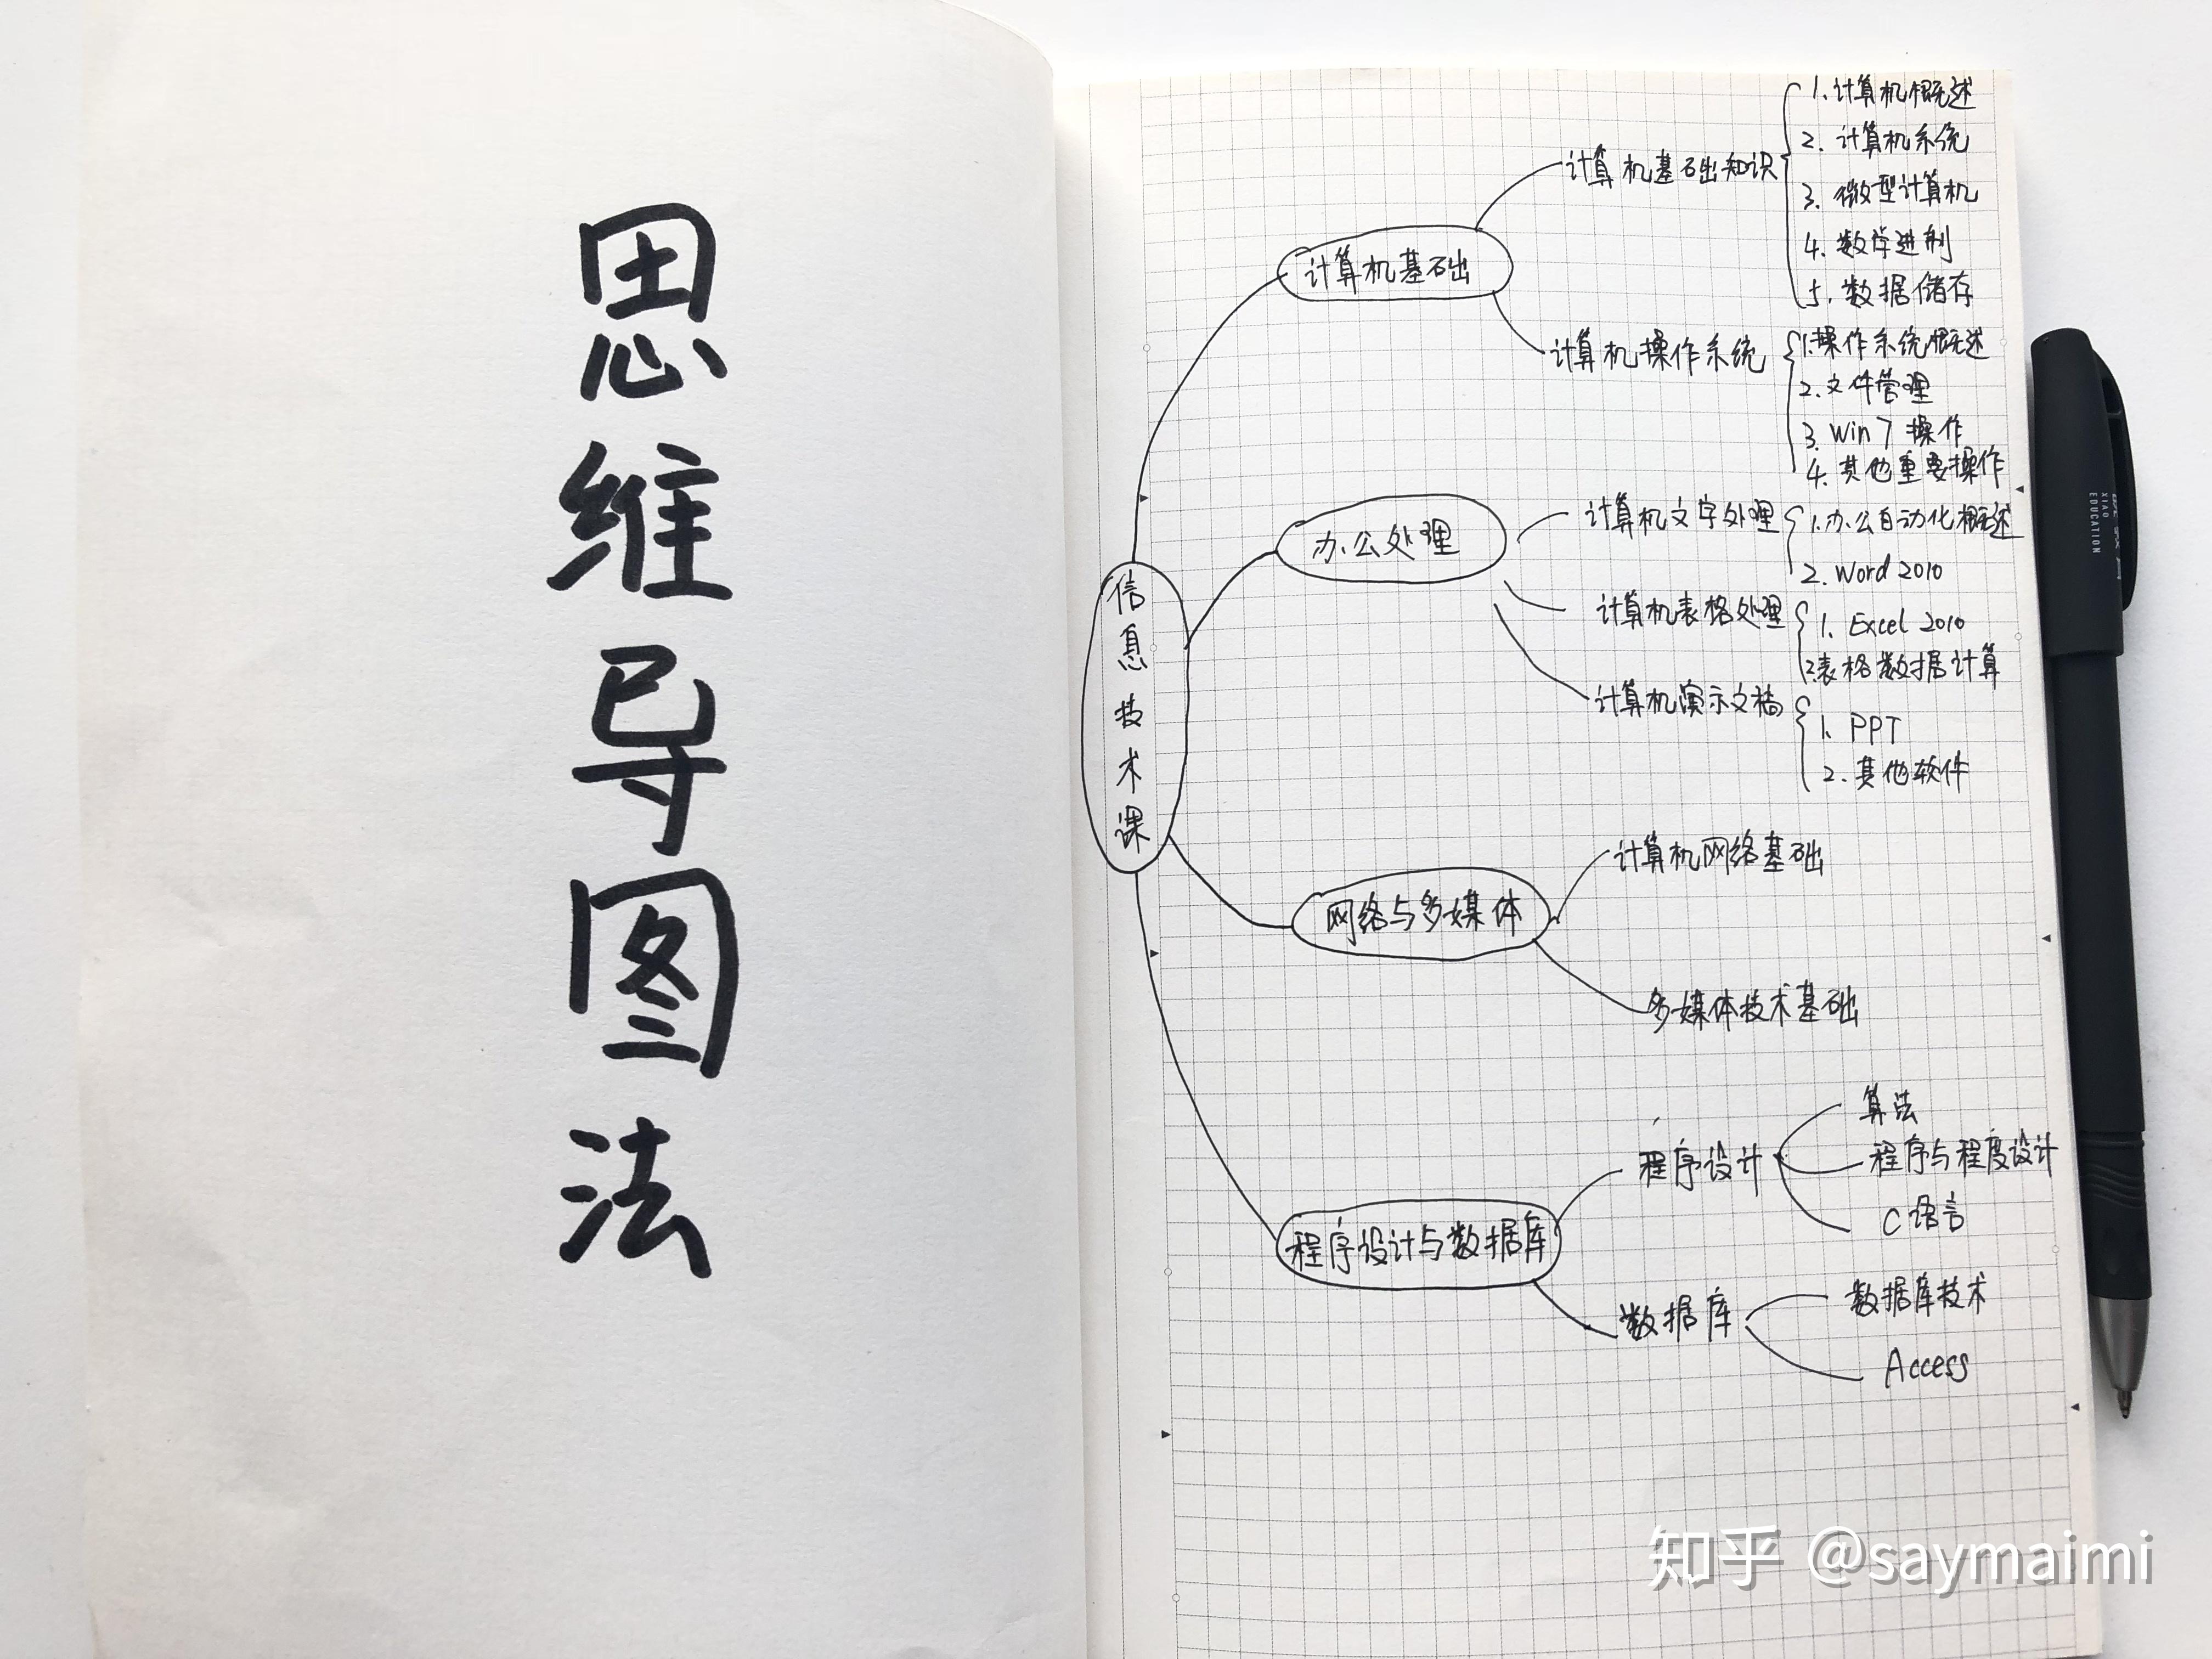 思维导图法
信息技术课
计算机基础
计算机基础知识
1.计算机概述
2.计算机系统
3.微型计算机
4.数学进制
5.数据储存
计算机操作系统
1.操作系统概述
2.文件管理
3.Win7操作
4.其他重要操作
办公处理
计算机文字处理
1.办公自动化概述
2.Word 2010
计算机表格处理
1.Excel 2010
2.表格数据计算
计算机演示文稿
1.PPT
2.其他软件
网络与多媒体
计算机网络基础
多媒体技术基础
程序设计与数据库
程序设计
算法
程序与程度设计
C语言
数据库
数据库技术
Access
XIAO
EDUCATION
知乎 @saymaimi